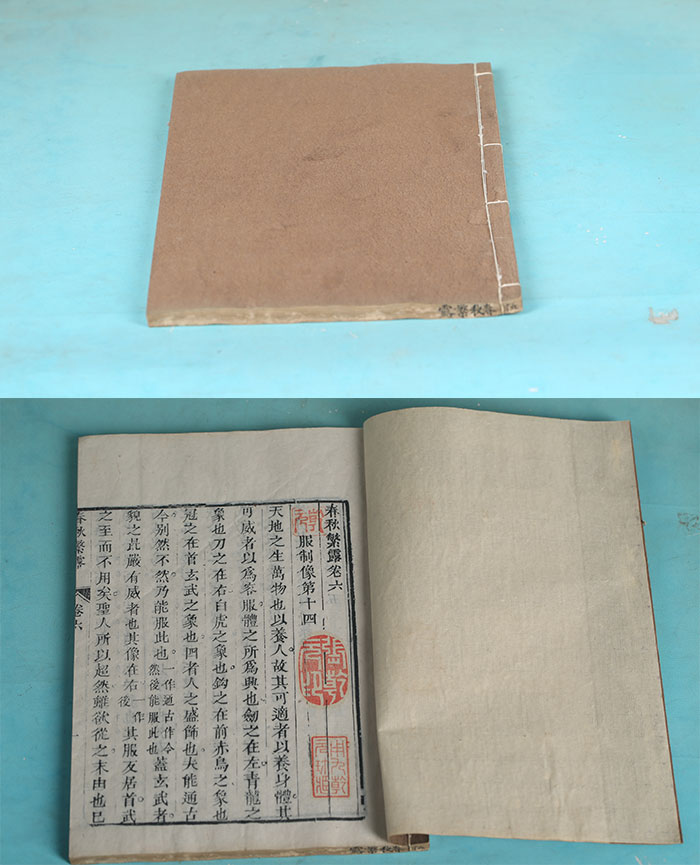 春秋繁露
春秋繁露卷六
服制像第十四
天地之生萬物也以養人故其可適者以養身體其
可威者以爲容服禮之所爲興也劍之在左青龍之
象也刀之在右白虎之象也鈎之在前赤鳥之象也
冠之在首玄武之象也四者人之盛飾也夫能通古
今别然不然乃能服此也一作通古作今然後能服此也蓋玄武者
貌之最嚴有威者也其像在右一作後其服反居首武
之至而不用矣聖人所以超然雖欲從之末由也已
春秋繁露 卷六
春秋繁露